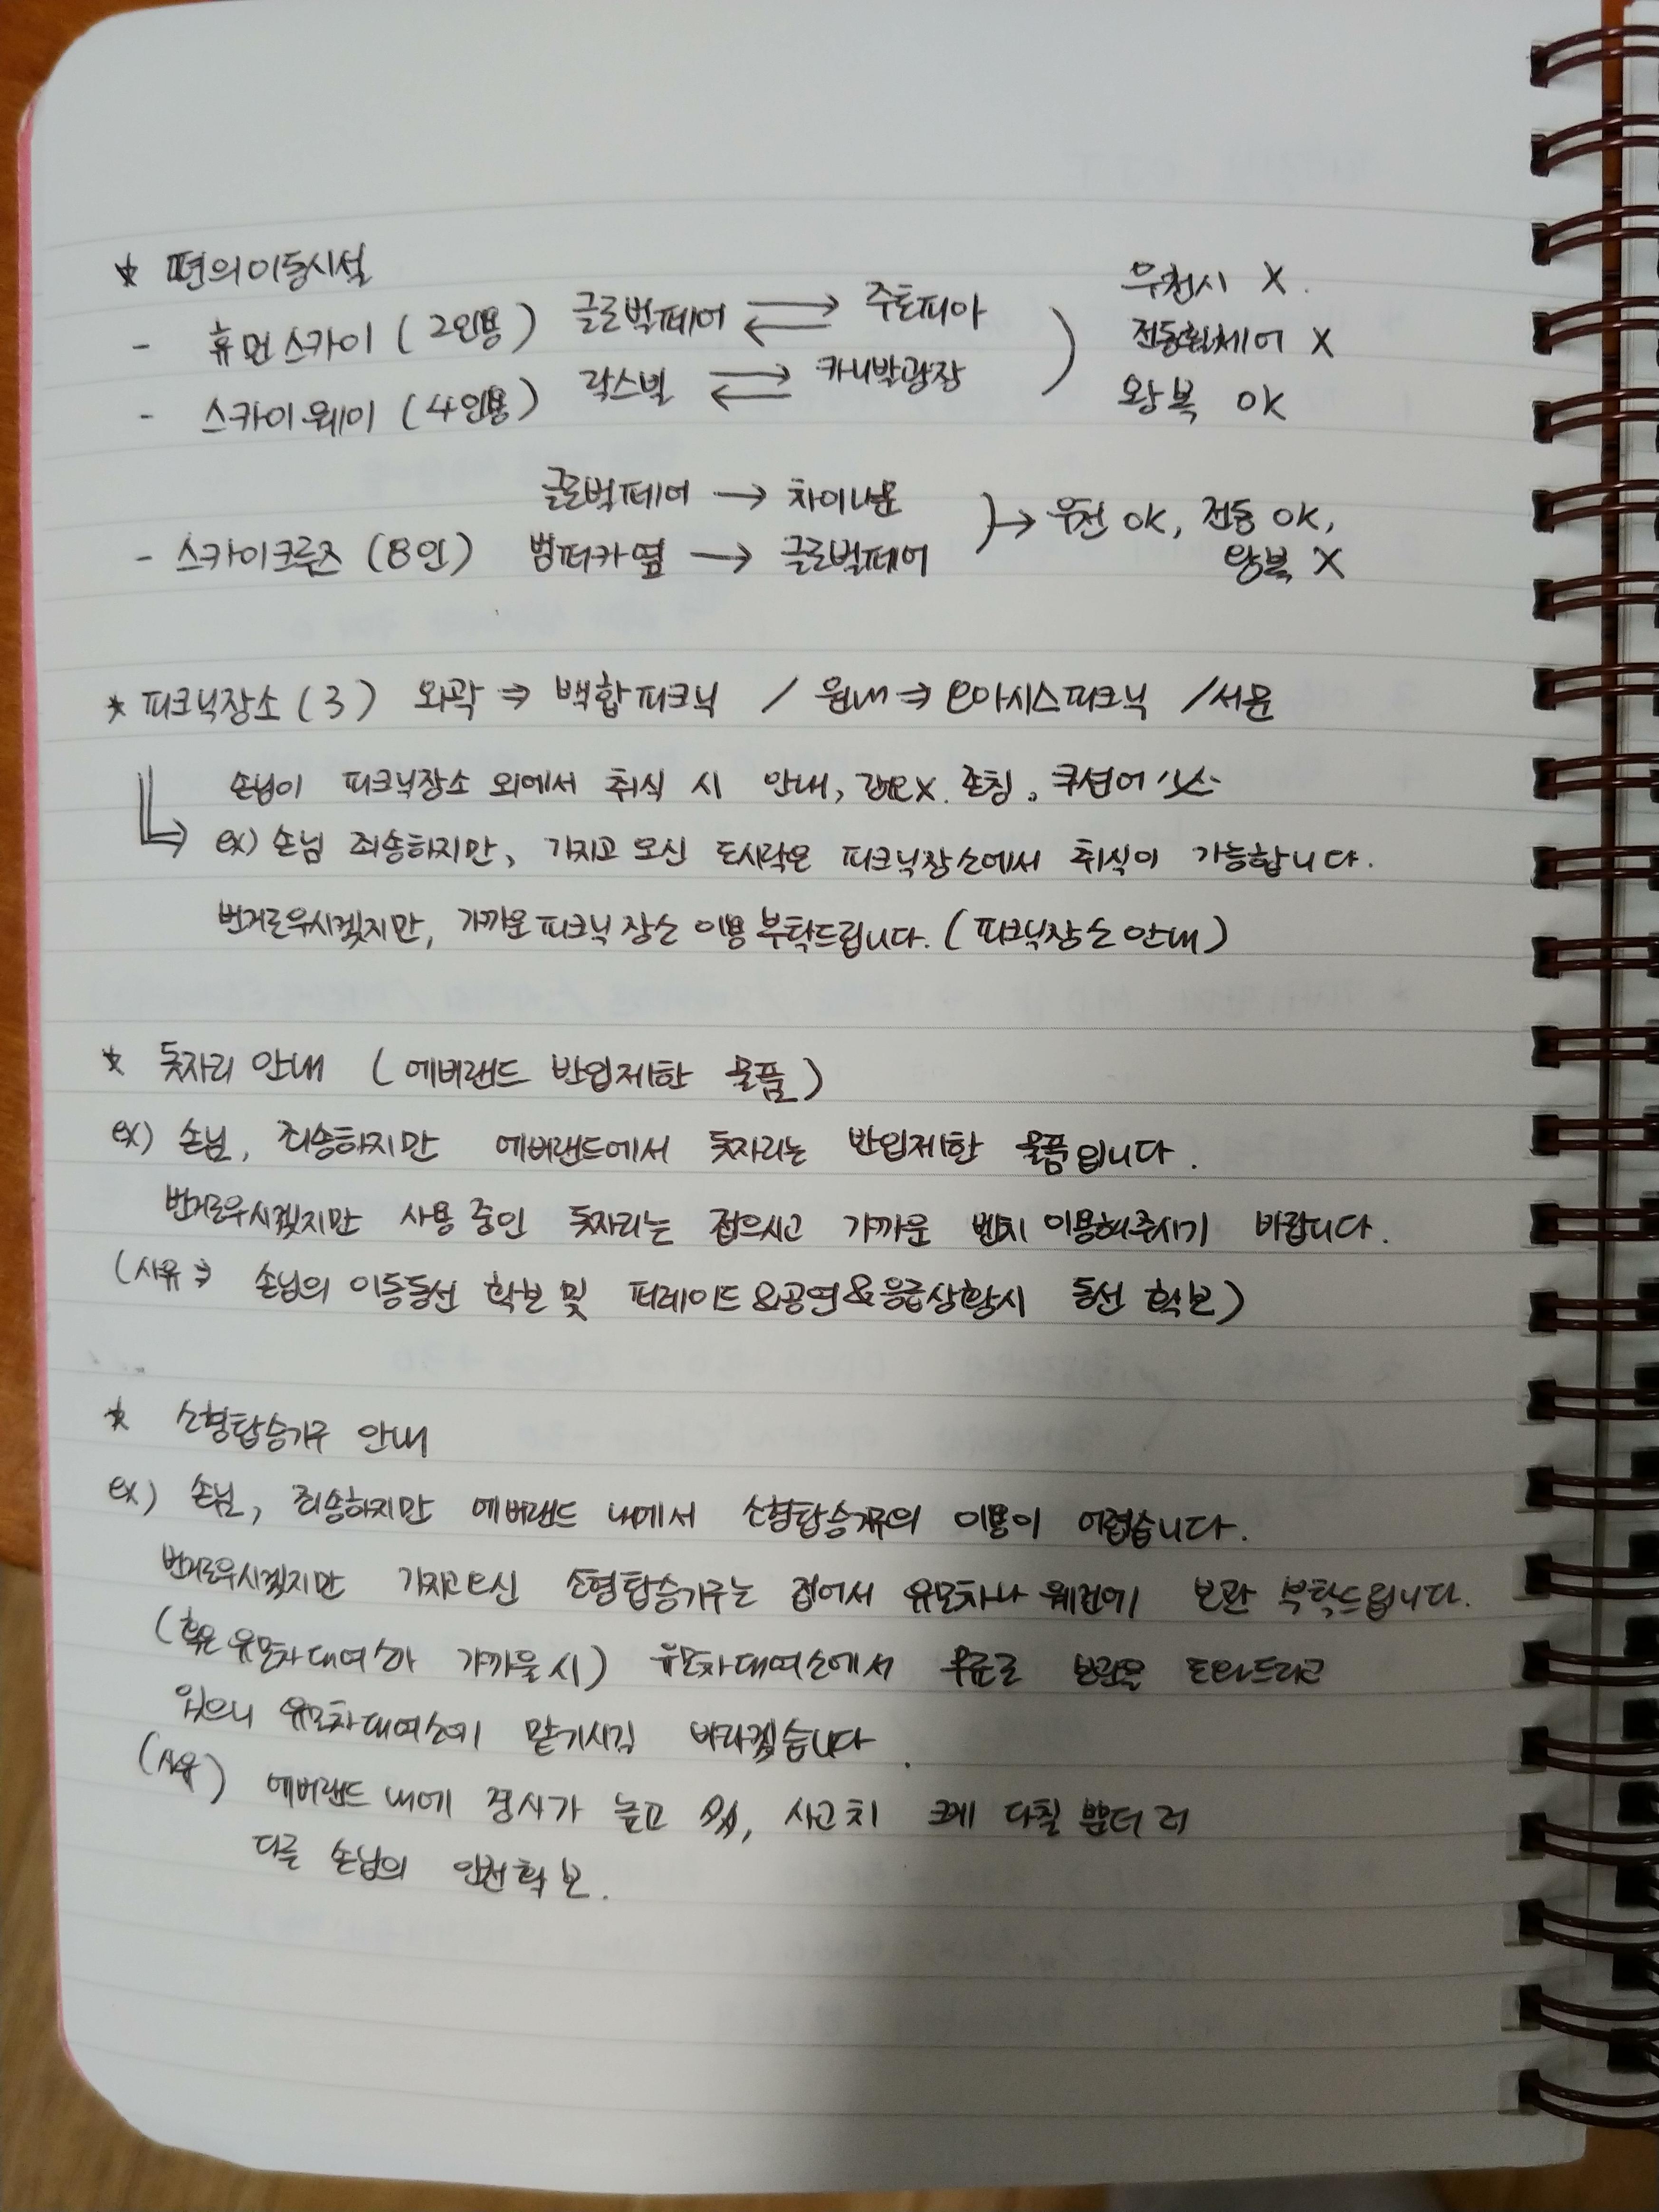 * 편의이동시설
- 휴먼스카이 (2인용) 글로벌페어 ⇄ 주토피아 우천시 X.
- 스카이웨이 (4인용) 락스빌 ⇄ 카니발광장 전동휠체어 X
왕복 OK
글로벌페어 → 차이나문
- 스카이크루즈 (8인) 범퍼카옆 → 글로벌페어 → 우천 OK, 전동 OK,
왕복 X
* 피크닉장소 (3) 외곽 ⇒ 백합피크닉 / 원내 ⇒ 오아시스피크닉 / 서문
손님이 피크닉장소 외에서 취식 시 안내, 강요X. 존칭. 쿠션어
ex) 손님 죄송하지만, 가지고 오신 도시락은 피크닉장소에서 취식이 가능합니다.
번거로우시겠지만, 가까운 피크닉 장소 이용 부탁드립니다. (피크닉장소 안내)
* 돗자리 안내 (에버랜드 반입제한 물품)
ex) 손님, 죄송하지만 에버랜드에서 돗자리는 반입제한 물품입니다.
번거로우시겠지만 사용 중인 돗자리는 접으시고 가까운 벤치 이용해주시기 바랍니다.
(사유 ⇒ 손님의 이동동선 확보 및 퍼레이드&공연&응급상황시 동선 확보)
* 소형탑승기구 안내
ex) 손님, 죄송하지만 에버랜드 내에서 소형탑승기구의 이용이 어렵습니다.
번거로우시겠지만 가지고오신 소형탑승기구는 접어서 유모차나 웨건에 보관 부탁드립니다.
(혹은 유모차대여소가 가까울 시) 유모차대여소에서 무료로 보관을 도와드리고
있으니 유모차대여소에 맡기시길 바라겠습니다.
(사유) 에버랜드 내에 경사가 높고 사고치 크게 다칠 뿐더러
다른 손님의 안전확보.